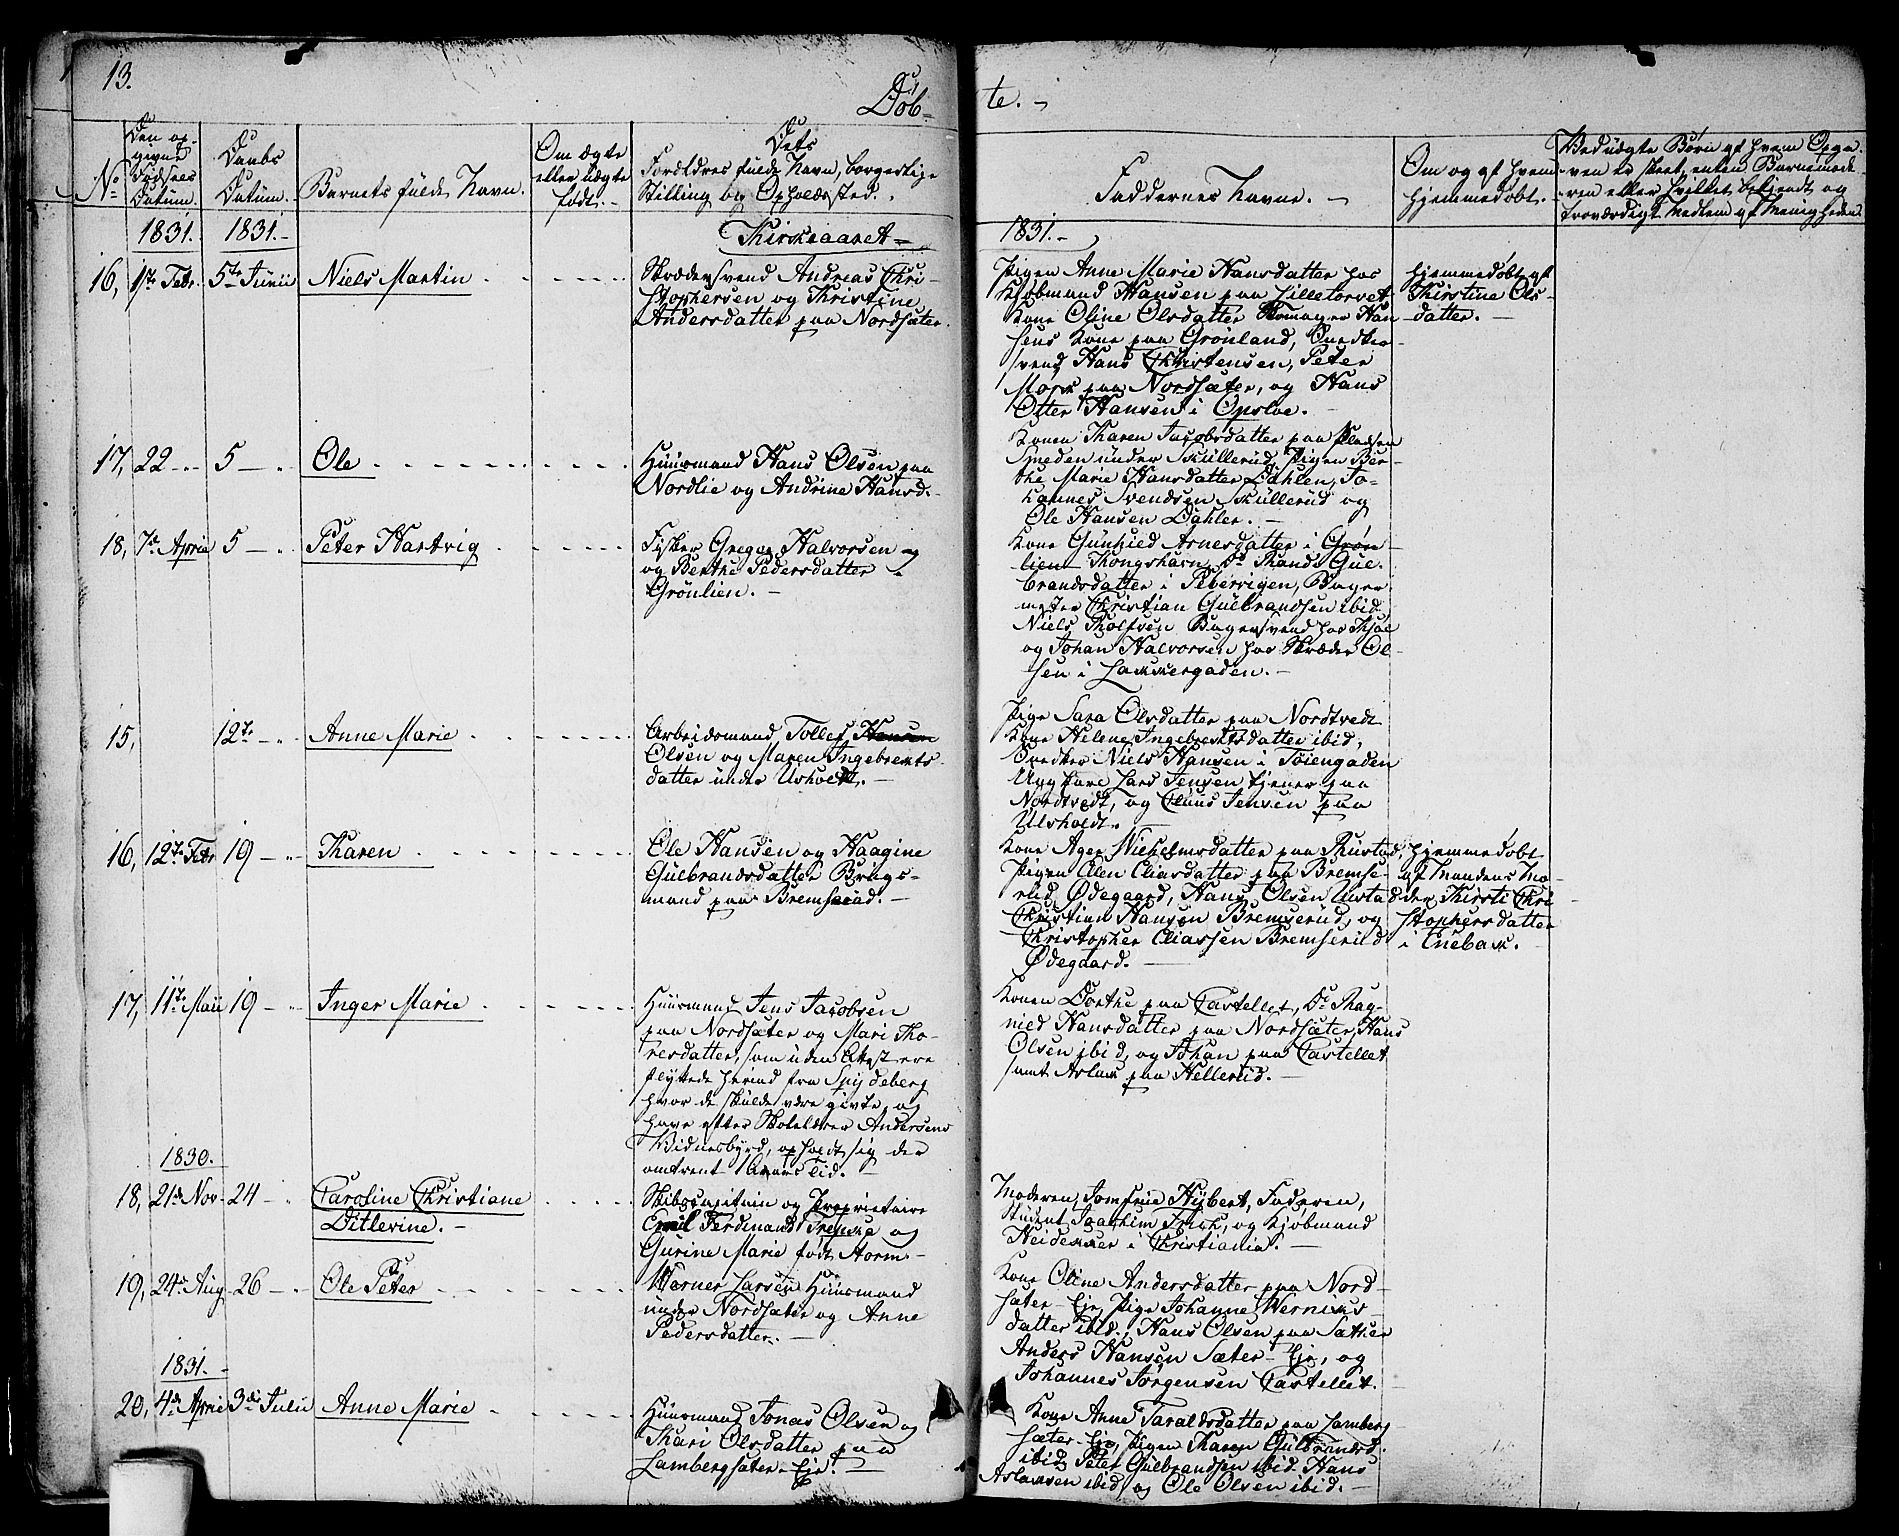 13.
Døb-
te. -
No
Den op-
givne
Fødsels
Datum.
Daabs
Datum.
Barnets fulde Navn.
Om ægte
eller uægte
født. -
Dets
Forældres fulde Navn, borgerlige
Stilling og Opholdssted.
Faddernes Navne. -
Om og af hvem
hjemmedøbt. -
Ved uægte Børn af hvem Opga-
ven er skeet, enten Barnemode-
ren eller hvilket bekjendt og
troværdigt Medlem af Menigheden.
1831. 1831. - Kirkeaaret - 1831. -
16, 1ste Febr. 5te Junii Niels Martin
Skrædersvend Andreas Chri-
stophersen og Kristine
Andersdatter paa Nordsæter.
Pigen Anne Marie Hansdatter hos
Kjøbmand Hansen paa Lilletorvet
Kone Oline Olsdatter Skomager Han-
sens Kone paa Grønland, Snedker-
svend Hans Christensen, Peter
Mork paa Nordsæter, og Hans
Otter Hansen i Opsloe. -
Hjemmedøbt af
Kirstine Ols-
datter. -
17, 22 - 5 - Ole
Huusmand Hans Olsen paa
Nordlie og Andrine Hansd. -
Konen Karen Jacobsdatter paa Pladsen
Smeden under Skullerud, Pigen Ber-
the Marie Hansdatter Dahlen, Jo-
hannes Svendsen Skullerud og
Ole Hansen Dahler. -
18, 7de April 5 - Peter Hartvig
Fisker Gregus Halvorsen og
og Berthe Pedersdatter
Grønlien. -
Kone Gunhild Arnesdatter i Grøn-
lien - Kongshavn, Do Randi Gul-
brandsdatter i Pebervigen, Bager-
mester Christian Gulbrandsen ibid
Niels Rolfsen Bagersvend hos Kjøl
og Johan Halvorsen hos Skræder Ol-
sen i Lakkergaden. -
15, 12te - Anne Marie
Arbeidsmand Tollef Hansen
Olsen og Maren Ingebrekts-
datter under Ulsholdt. -
Pige Sara Olsdatter paa Nordtvedt
Kone Helene Ingebrektsdatter ibid,
Snedker Niels Hansen i Tøiengaden
Ungkarl Lars Jensen tjener paa
Nordtvedt, og Claus Jensen paa
Ulsholdt.
16, 12te Febr 19 - Karen
Ole Hansen og Haagine
Gulbrandsdatter Brugs-
mand paa Bremserud. -
Kone Agen Vilhelmsdatter paa Rustad,
Pigen Elen Eliasdatter paa Bremse-
rud Ødegaard, Hans Olsen Rustad
Christian Hansen Bremserud, og
Christopher Eliassen Bremserud
Ødegaard. -
Hjemmedøbt
af Mandens Mo-
der Kirsti Chri-
stophersdatter
i Enebak. -
17, 11te Maii 19 - Inger Marie
Huusmand Jens Jacobsen
paa Nordsæter og Mari Tho-
resdatter, som uden Attest ere
flyttede herind fra Spydeberg
hvor de skulde være givte, og
have efter Skolelærer Andersens
Vidnesbyrd, opholdt sig der
omtrent 1 Aars Tid. -
Konen Dorthe paa Castellet, Do Rag-
nild Hansdatter paa Nordsæter, Hans
Olsen ibid, og Johan paa Castellet
samt Aslak paa Hellerud. -
1830.
18, 21de Nov- 24 - Caroline Christiane
Ditlevine. -
Skibscapitain og Proprietaire
Emil Ferdinand Freuske og
Gurine Marie født Storm. -
Moderen, Jomfrue Hybert, Faderen,
Student Joachim Frich, og Kjøbmand
Heidekker i Christiania. -
19, 24de Aug 26 - Ole Peter
Werner Larsen Huusmand
under Nordsæter og Anne
Pedersdatter. -
Kone Oline Andersdatter paa Nord-
sæter-Eje, Pige Johanne Wernils-
datter ibid., Hans Olsen paa Sæther
Anders Hansen Sæter-Eje, og
Johannes Jørgensen Castellet.
1831. -
20, 4de April 3die Julii Anne Marie
Huusmand Jonas Olsen og
Kari Olsdatter paa
Lambergsæter-Eje. -
Kone Anne Taraldsdatter paa Lamberg-
sæter-Eje, Pigen Karen Gulbrandsd.
ibid, Peter Gulbrandsen ibid. Hans
Aslaksen ibid, og Ole Olsen ibid. -